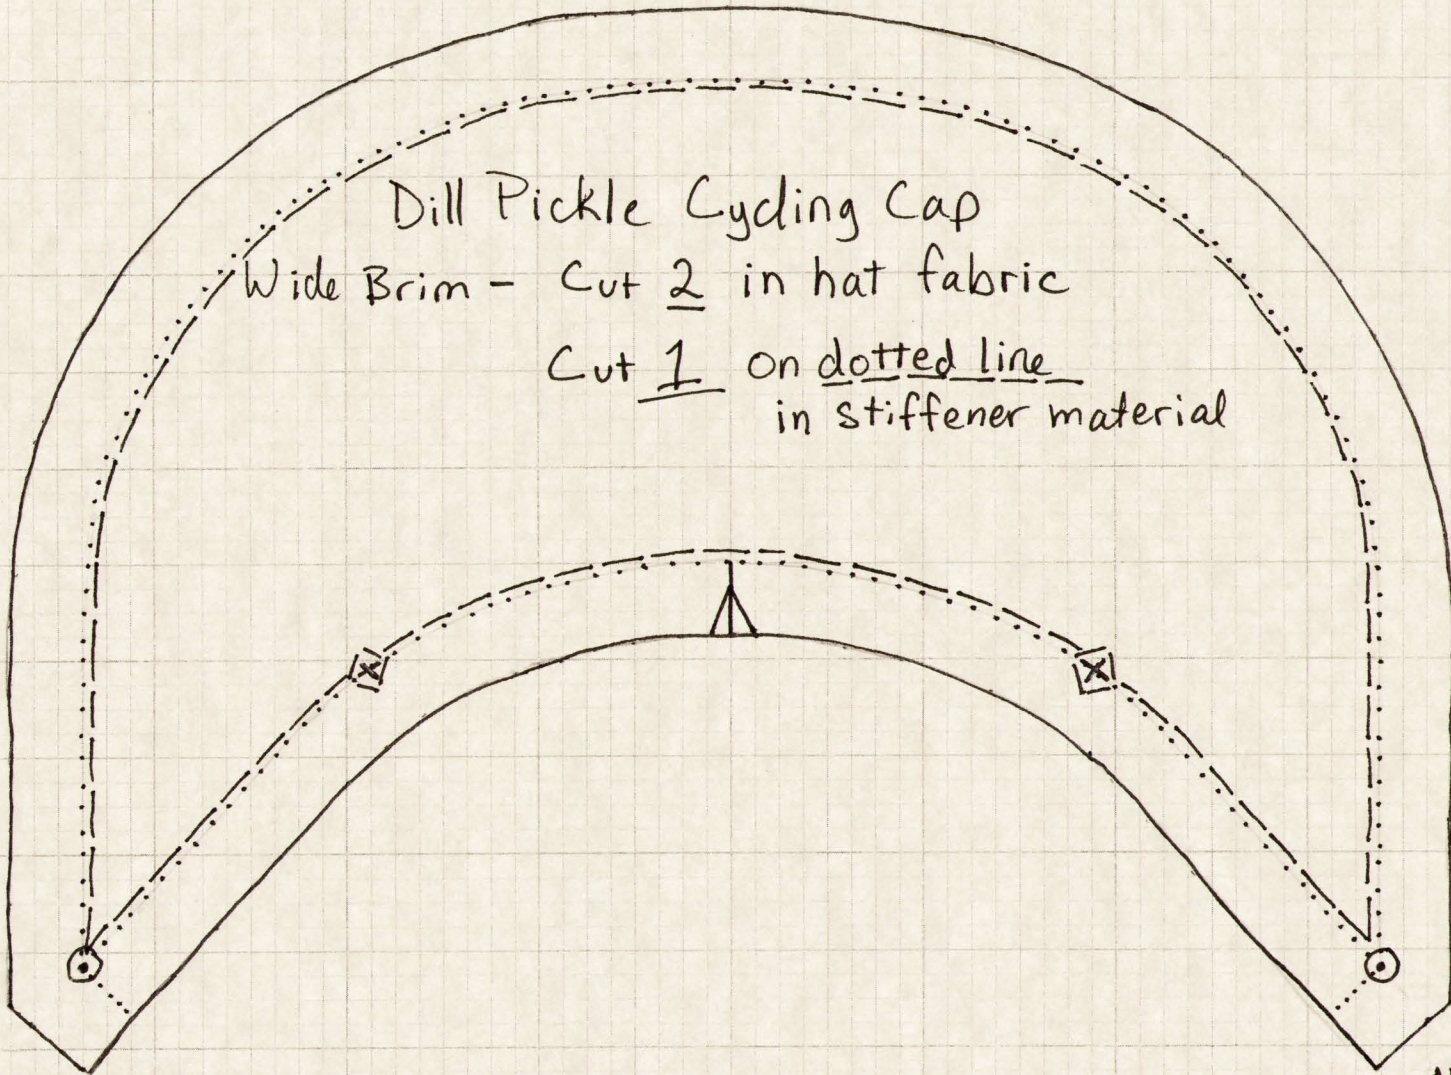 Dill Pickle Cycling Cap
Wide Brim - Cut 2 in hat fabric
Cut 1 on dotted line
in stiffener material